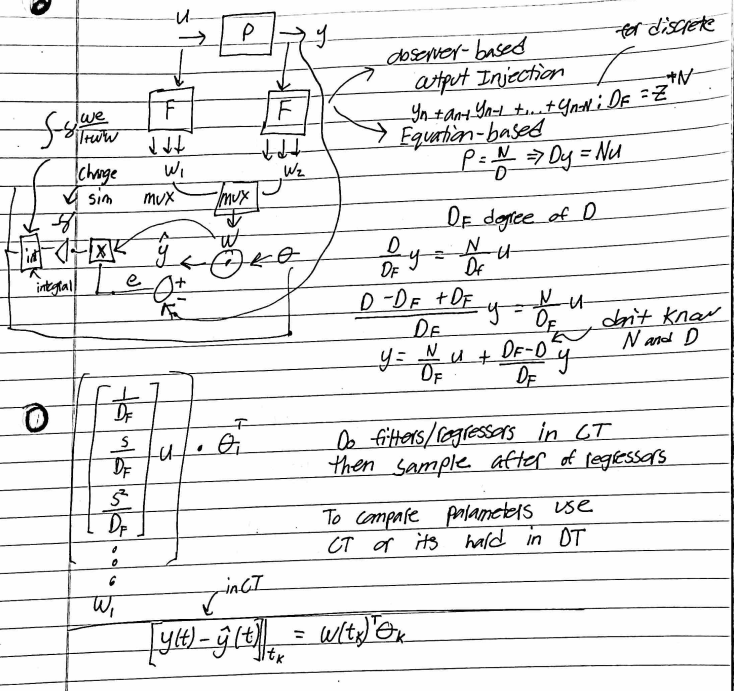 u
P
y
observer-based
output Injection
for discrete
yn + an-1 yn-1 + ... + yn-N ; DF = Z^+N
Equation-based
P = N/D ⇒ Dy = Nu
F
F
∫-γ we/1+w'w
change
sim
w1
w2
mux
mux
-γ
int
X
ŷ
w
θ
integral
e
+
-
DF degree of D
D/DF y = N/Df u
D - DF + DF / DF y = N/DF u
don't know
N and D
y = N/DF u + DF-D/DF y
1/DF
s/DF
u · θ1^T
s²/DF
w1
Do filters/regressors in CT
then sample after of regressors
To compare parameters use
CT or its hard in DT
in CT
[y(t) - ŷ(t)]|tk = w(tk)^T θk